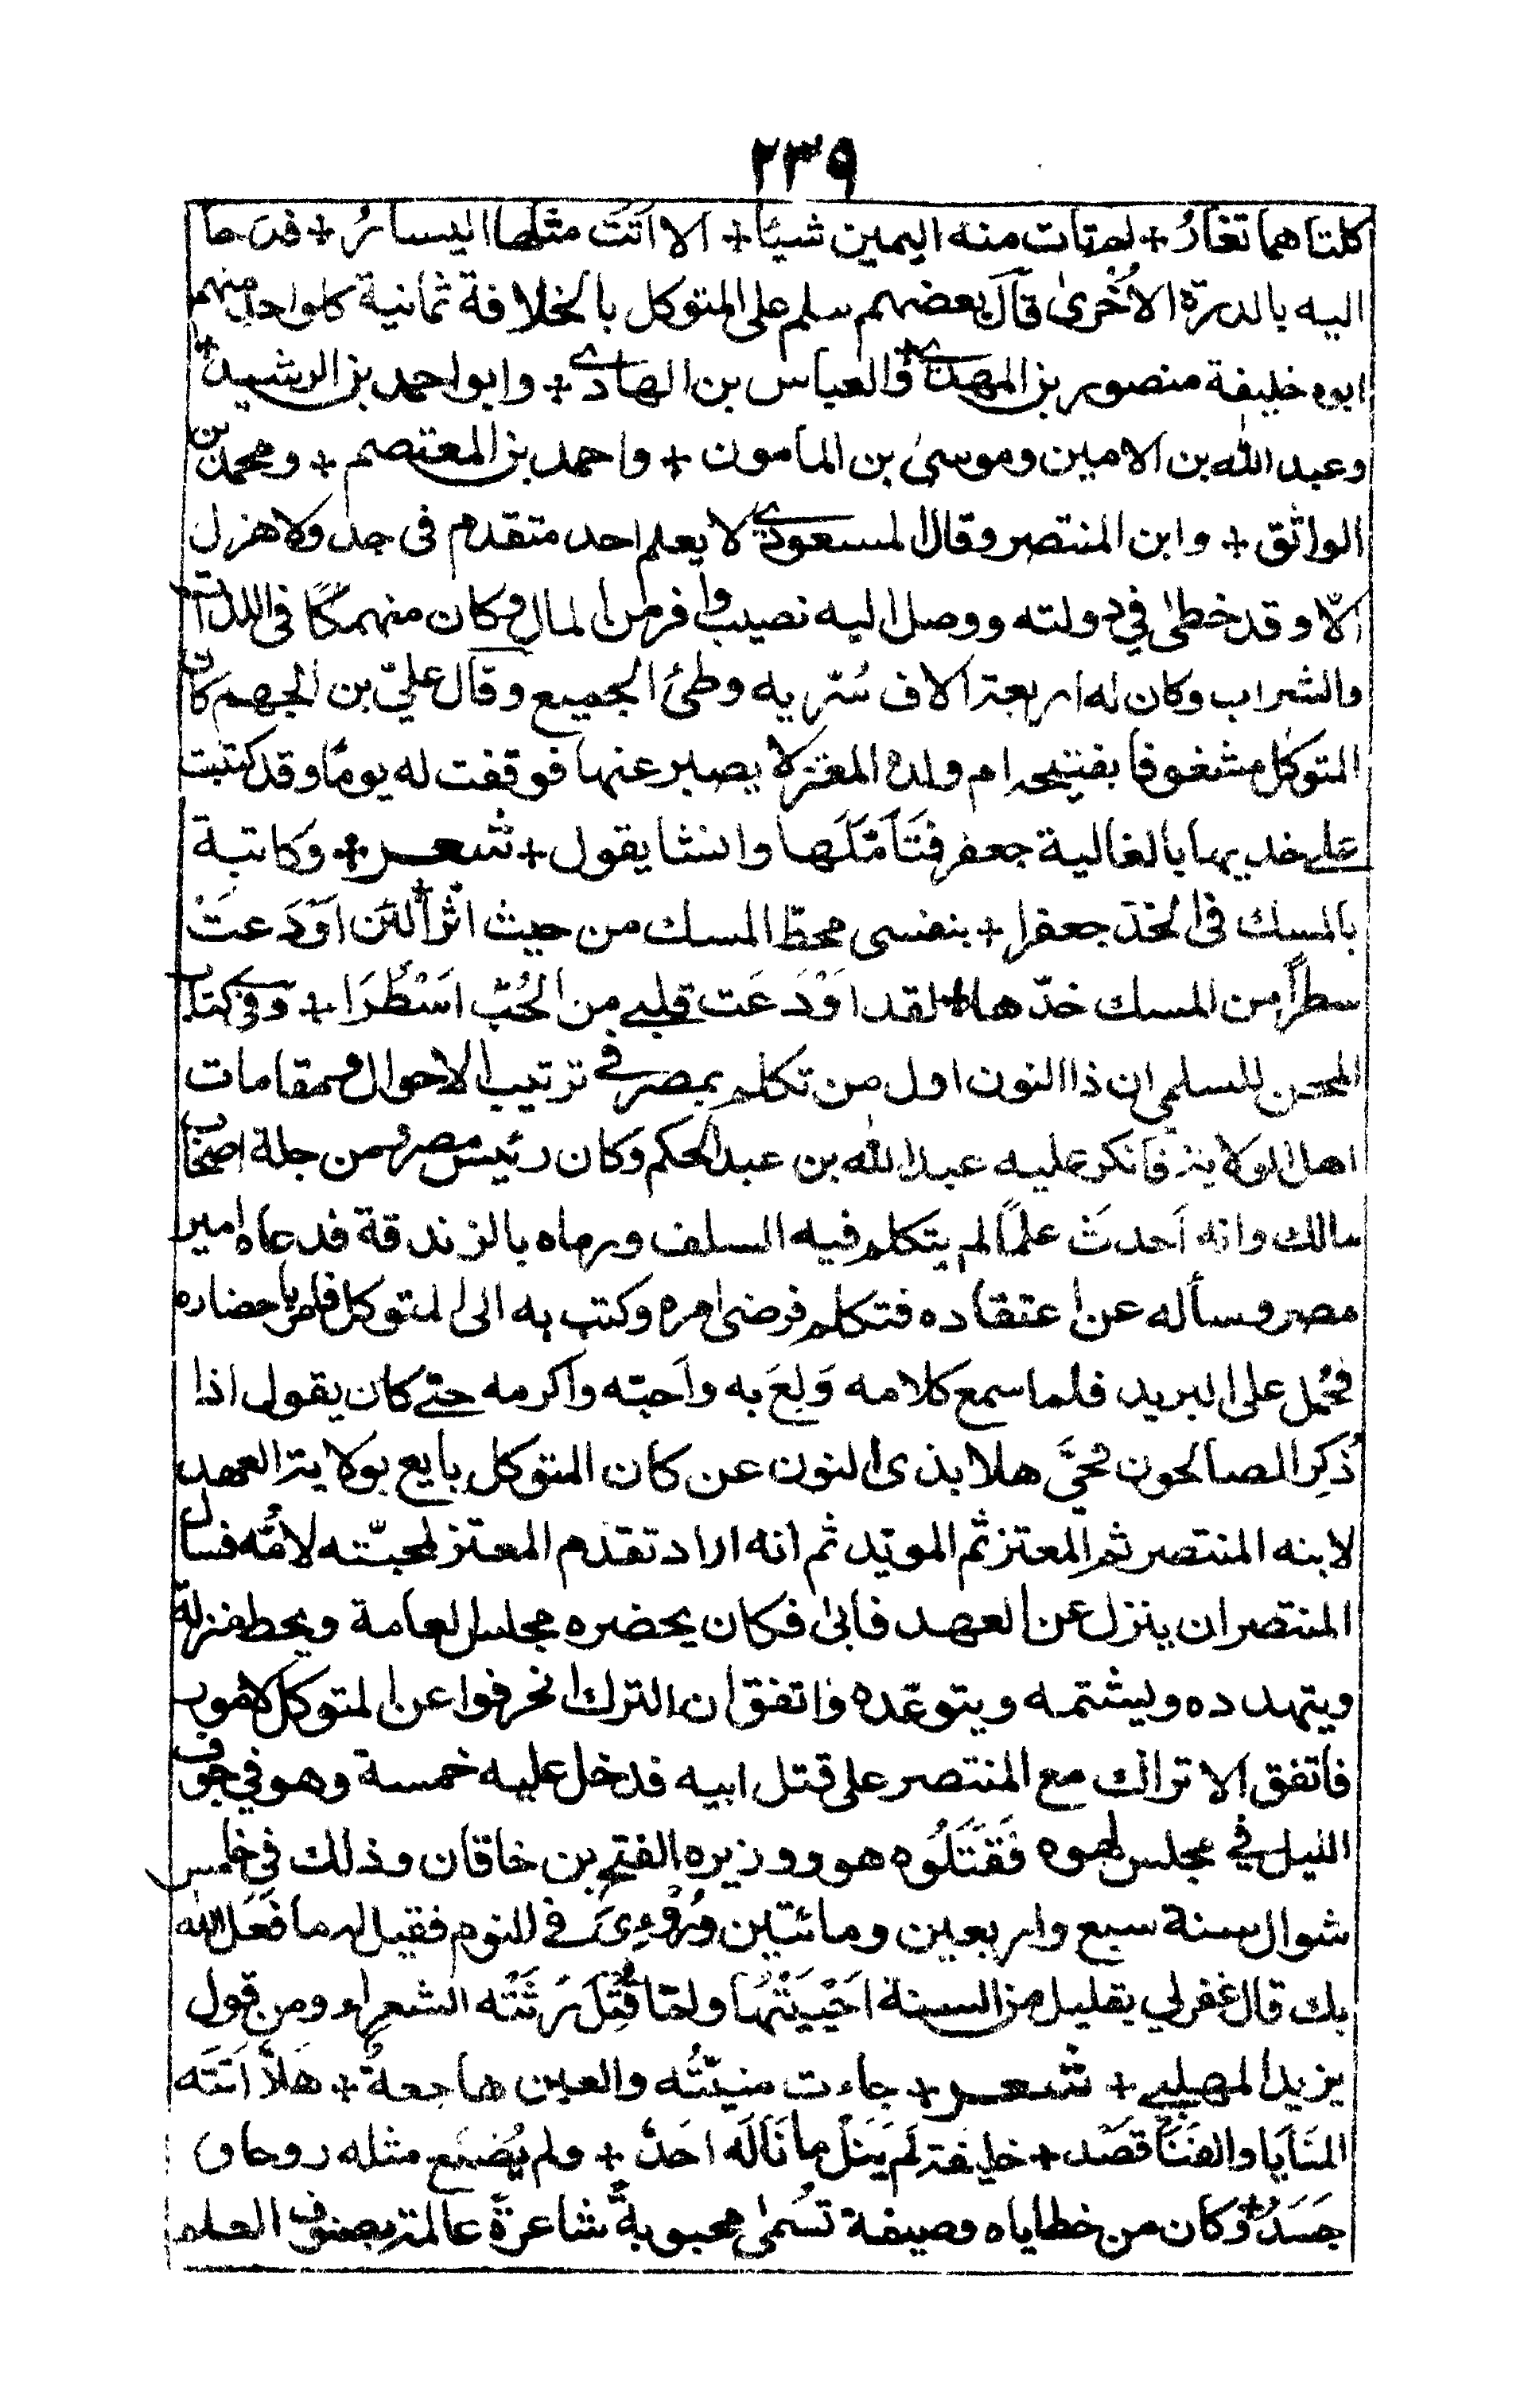 ٢٣٩
كلتاهما تغارُ + لم تات منه اليمين شيئًا + الا اَتَتْ مثلها اليسارُ + فدحا
اليه بالدرة الاُخرىٰ قال بعضهم سلم على المتوكل بالخلافة ثمانية كلواحد منهم
ابوه خليفة منصور بن المهدي + والعباس بن الهادي + وابو احمد بن الرشيد +
وعبد الله بن الامين وموسىٰ بن المامون + واحمد بن المعتصم + ومحمد بن
الواثق + وابن المنتصر وقال المسعودي لا يعلم احد متقدم فى جد ولا هزل
الّا وقد خطى في دولته ووصل اليه نصيب وافر من المال وكان منهمكًا فى اللذات
والشراب وكان له اربعة الاف سُرّيه وطئ الجميع وقال عليّ بن الجهم كان
المتوكل مشغوفا بفتيحه ام ولده المعتز لا يصبر عنها فوقفت له يومًا وقد كتبت
على خديها بالغالية جعفر فتَأَمَّلَها وانشا يقول + شعر + وكاتبة
بالمسك فى الخد جعفرا + بنفسى محطّ المسك من حيث اثرا + لئن اَوْدَعتْ
سطراً من المسك خدّها + لقد اَوْدَعَت قلبي من الحُبّ اَسْطُرَا + وفي كتاب
المحن للسلمي ان ذا النون اول من تكلم بمصر في ترتيب الاحوال ومقامات
اهل الولاية فانكر عليه عبد الله بن عبد الحكم وكان رئيس مصر ومن جلة اصحاب
مالك وانه اَحدثَ علماً لم يتكلم فيه السلف ورماه بالزندقة فدعاه امير
مصر وسأله عن اعتقاده فتكلم فرضى امره وكتب به الى المتوكل فامر باحضاره
فحُمل على البريد فلما سمع كلامه وَلِعَ به واَحبّه واكرمه حتى كان يقول اذا
ذُكِرَ الصالحون فحَيَّ هلا بذى النون عن كان المتوكل بايع بولاية العهد
لابنه المنتصر ثم المعتز ثم المويّد ثم انه اراد تقدم المعتز لمحبّته لاُمّه فسال
المنتصر ان ينزل عن العهد فابىٰ فكان يحضره مجلس العامة ويحط منزلة
ويتهدده ويشتمه ويتوعّده واتفق ان الترك انحرفوا عن المتوكل لامور
فاتفق الاتراك مع المنتصر على قتل ابيه فدخل عليه خمسة وهو في جوف
الليل في مجلس لهوه فَقَتَلُوه هو ووزيره الفتح بن خاقان وذلك في خامس
شوال سنة سبع واربعين ومائتين ورُؤِيَ في النوم فقيل له ما فَعَل الله
بك قال غفر لي بقليل من السنة اَحْيَيْتُها ولمّا قُتِلَ رَثَتْه الشعراء ومن قول
يزيد المهلبي + شعر + جاءت منيّتُه والعين هاجعةٌ + هَلّا اَتَتَه
المَنَايَا والقَنَا قصَد + خليفة لم يَنَل ما نَالَه احَدٌ + ولم يُضَع مثله روحا و
جَسَدُ + وكان من خطاياه وصيفة تسُمىٰ محبوبةً شاعرةً عالمة بصنوف العلم